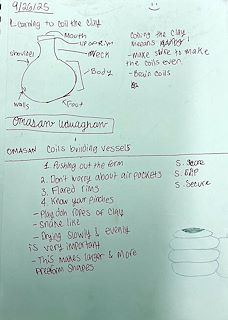 9/26/25
Learning to coil the clay
Mouth
lip or rim
Neck
shoulder
Body
walls
Foot
Coiling the clay
means
-make sure to make
the coils even
-Brain coils
Omasan
OMASAN Coils building vessels
1. Pushing out the form
2. Don't worry about air pockets
3. Flared rims
4. Know your pinches
- Play doh ropes of clay
- Snake like
- Drying slowly & evenly
is very important
- This makes larger & more
freeform shapes
S. Score
S. Slip
S. Secure